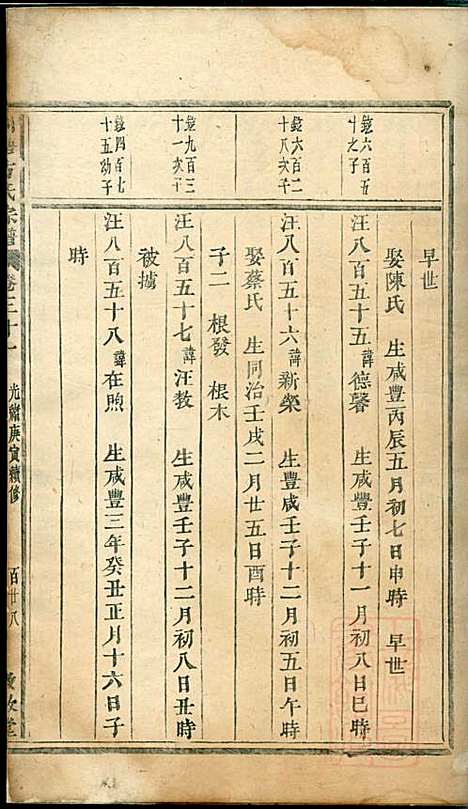 早世
娶陳氏 生咸豐丙辰五月初七日申時 早世
鎡六百五十之子
汪八百五十五諱德馨 生咸豐壬子十一月初八日巳時
鎡六百二十八次子
汪八百五十六諱新榮 生豐咸壬子十二月初五日午時
娶蔡氏 生同治壬戌二月廿五日酉時
子二 根發 根木
鎡九百三十一次子
汪八百五十七諱汪教 生咸豐壬子十二月初八日丑時
被擄
鎡四百七十五幼子
汪八百五十八諱在煦 生咸豐三年癸丑正月十六日子
時
氏宗譜 卷三十一 光緒庚寅續修 百廿八 敘堂